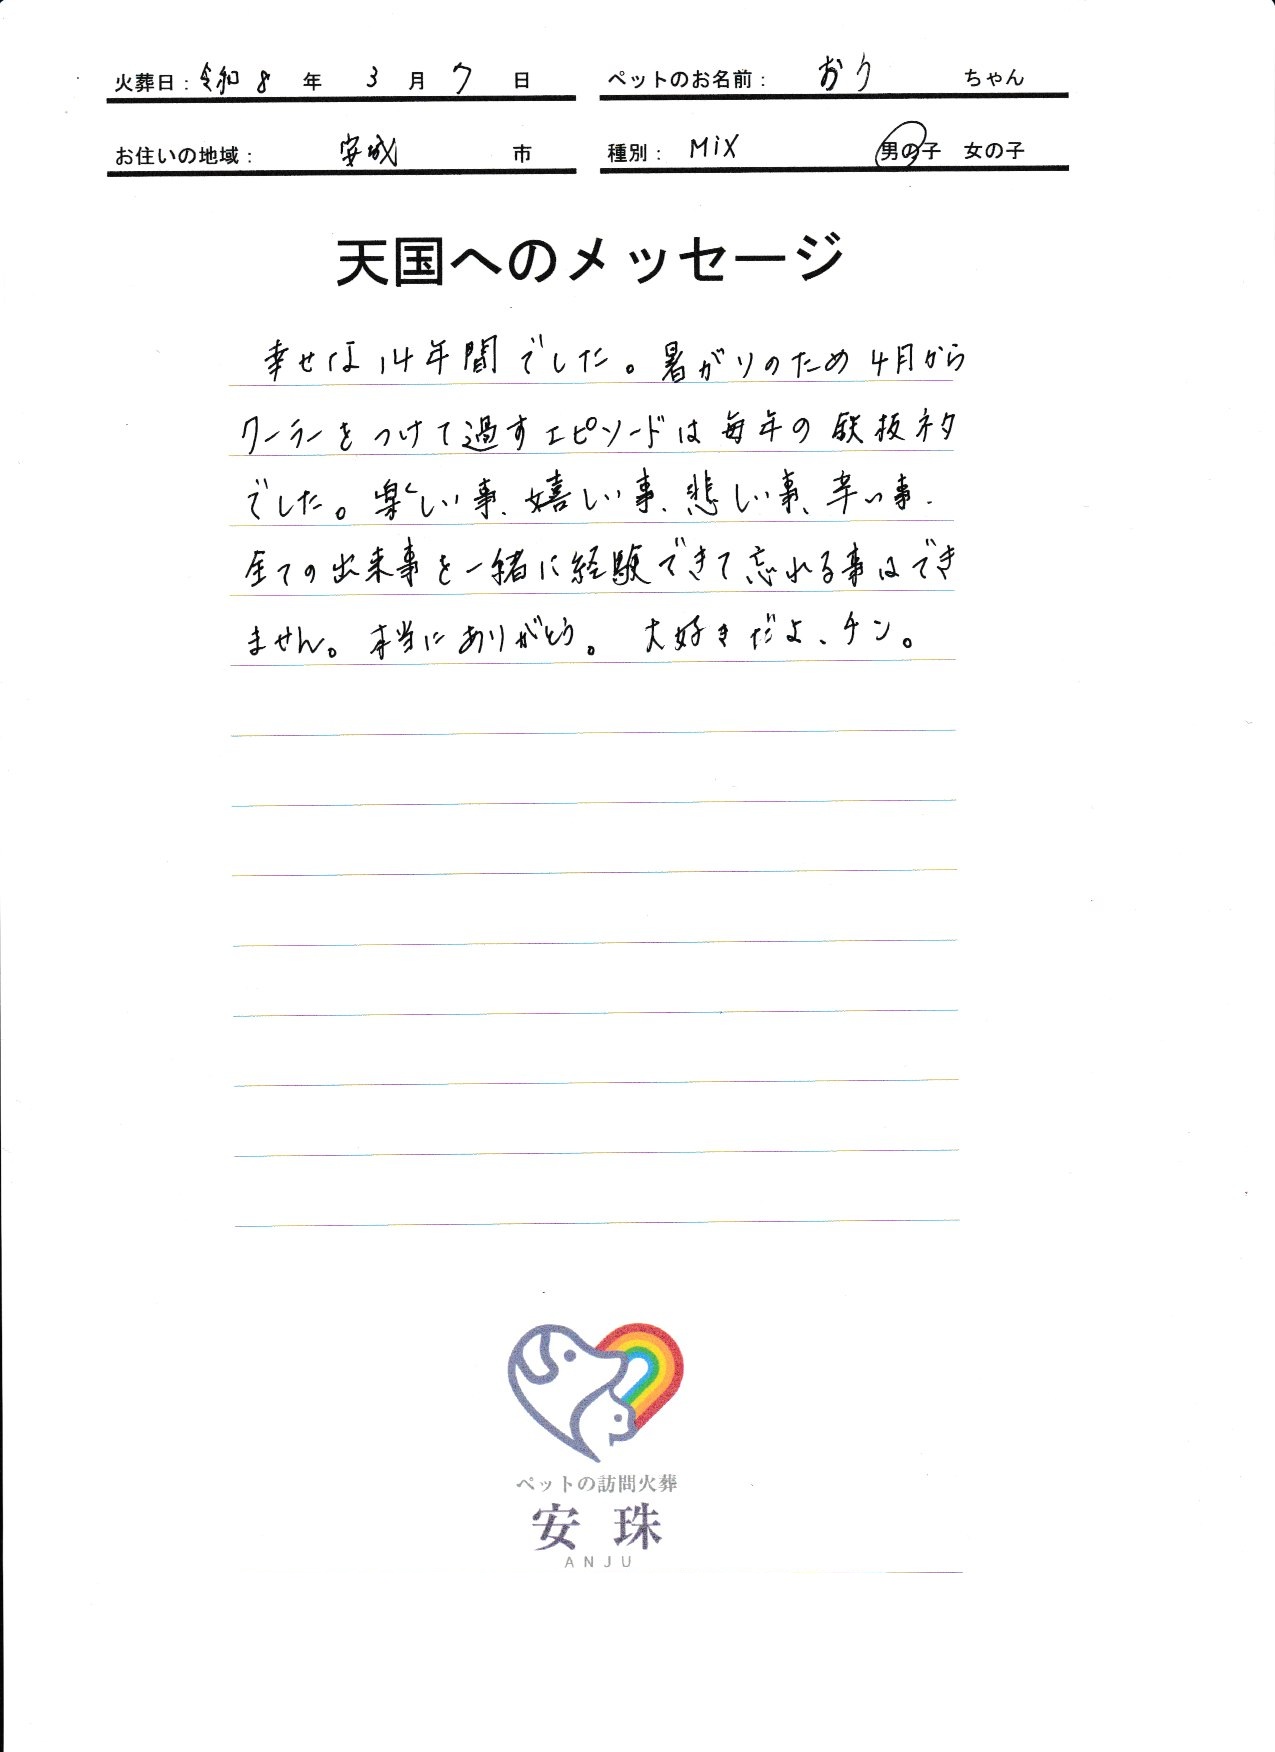 火葬日：令和 8 年 3 月 7 日
ペットのお名前： おり ちゃん
お住いの地域： 安城 市
種別： MiX 男の子 女の子
天国へのメッセージ
幸せな14年間でした。暑がりのため4月から
クーラーをつけて過すエピソードは毎年の鉄板ネタ
でした。楽しい事、嬉しい事、悲しい事、辛い事、
全ての出来事を一緒に経験できて忘れる事はでき
ません。本当にありがとう。 大好きだよ、チン。
ペットの訪問火葬
安 珠
ANJU